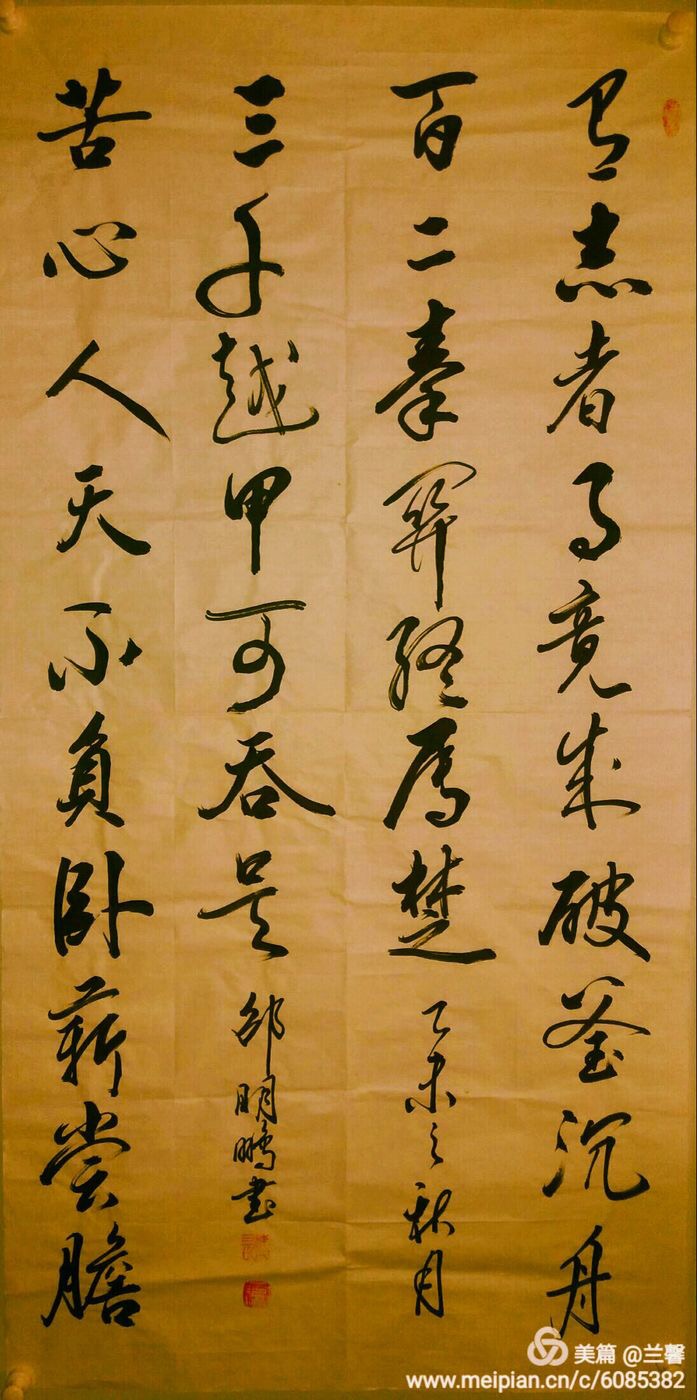 有志者事竟成破釜沉舟
百二秦關終属楚
乙未之秋月
苦心人天不負卧薪嘗膽
三千越甲可吞吴
邵明鵬書
美篇 @兰馨
www.meipian.cn/c/6085382